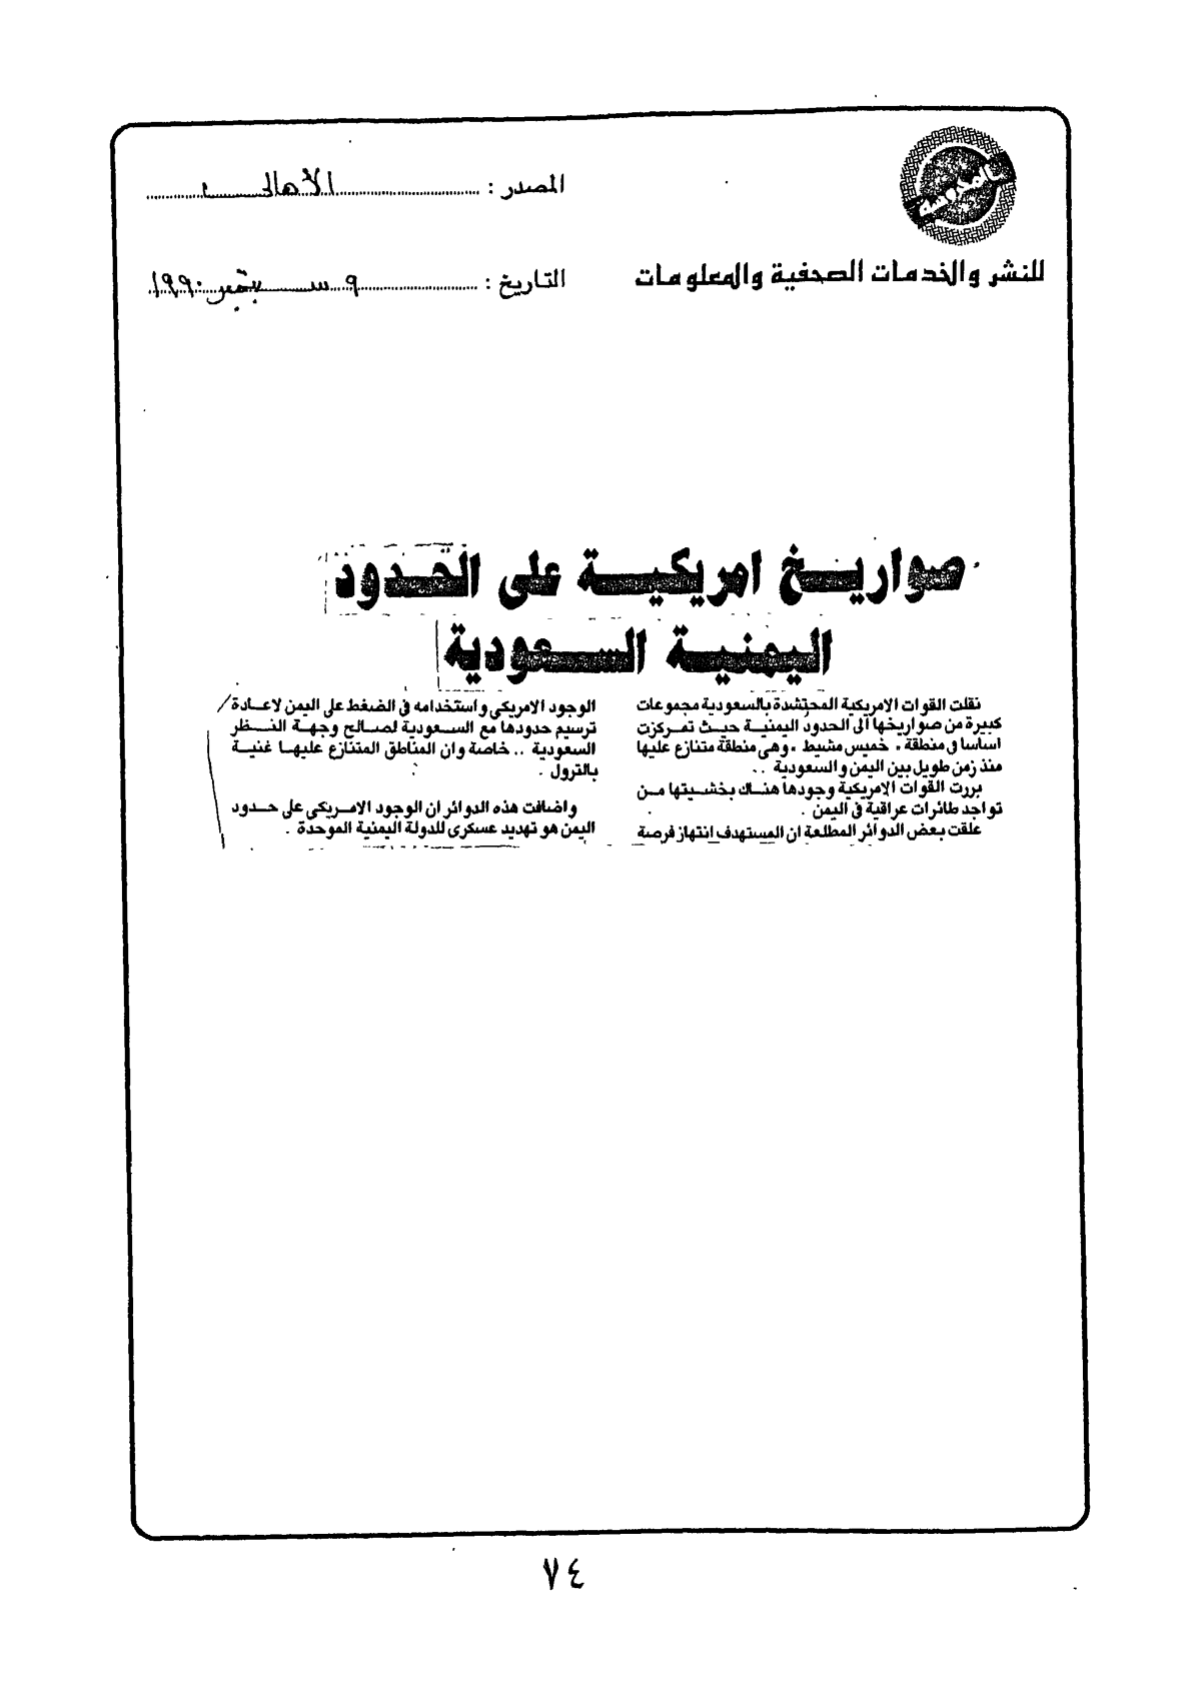 المصدر : الأهالى
للنشر والخدمات الصحفية والمعلومات
التاريخ : ٩ سبتمبر ١٩٩٠
صواريخ امريكية على الحدود
اليمنية السعودية
نقلت القوات الامريكية المحتشدة بالسعودية مجموعات
كبيرة من صواريخها الى الحدود اليمنية حيث تمركزت
اساسا فى منطقة ، خميس مشيط ، وهى منطقة متنازع عليها
منذ زمن طويل بين اليمن والسعودية ..
بررت القوات الامريكية وجودها هناك بخشيتها من
تواجد طائرات عراقية فى اليمن .
علقت بعض الدوائر المطلعة ان المستهدف انتهاز فرصة
الوجود الامريكى واستخدامه فى الضغط على اليمن لاعادة
ترسيم حدودها مع السعودية لصالح وجهة النظر
السعودية .. خاصة وان المناطق المتنازع عليها غنية
بالترول .
واضافت هذه الدوائر ان الوجود الامريكى على حدود
اليمن هو تهديد عسكرى للدولة اليمنية الموحدة .
٧٤